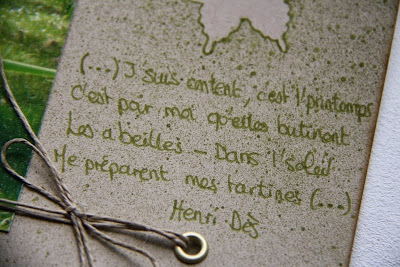 (...) J'suis content, c'est l'printemps
C'est pour moi qu'elles butinent
Les abeilles – Dans l'soleil
Me préparent mes tartines (...)
Henri Dès